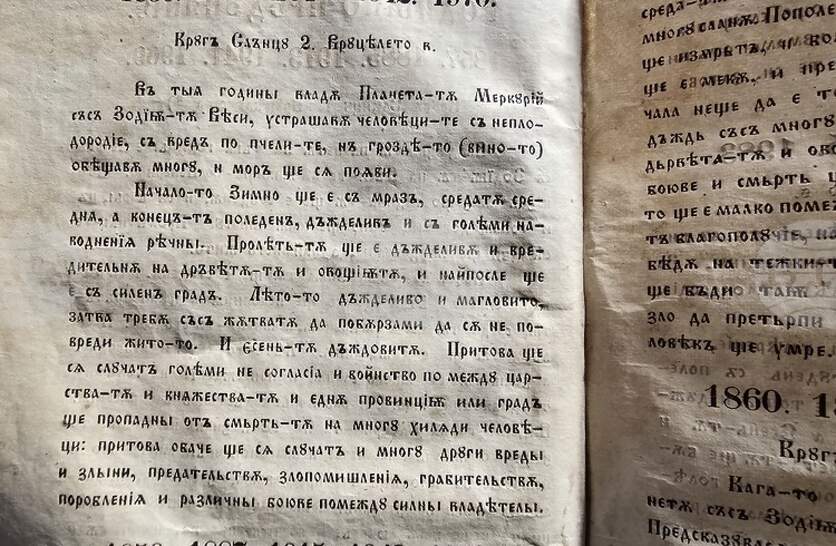 1942. 1970.
Крꙋгъ Слънцꙋ 2. Врꙋцѣлето в.
Въ тыѧ годины владѣ Планета-тѫ Меркꙋрій
съсъ Зодіѭ-тѫ Вѣси, устрашавѫ человѣци-те съ непло-
дородіе, съ вредъ по пчели-те, нъ гроздѣ-то (вино-то)
обѣщавѫ многꙋ, и моръ ще сѧ поѧви.
Начало-то Зимно ще є съ мразъ, средатѫ сре-
днѧ, а конецъ-тъ поледенъ, дъжделивъ и съ голѣми на-
водненіѧ рѣчны. Пролѣть-тѫ ще є дъжделивѫ и вре-
дительнѫ на дръвѣтѫ-тѫ и овощіѭтѫ, и найпосле ще
є съ силенъ градъ. Лѣто-то дъжделиво и магловито,
затва требѫ съсъ жѫтватѫ да побързами да сѧ не по-
вреди жито-то. И єсень-тѫ дъждовитѫ. Притова ще
сѧ слꙋчѫтъ голѣми не согласіа и войнство по междꙋ цар-
ства-тѫ и княжества-тѫ и еднѫ провинціѭ или градъ
ще пропадны отъ смерть-тѫ на многꙋ хилѧди человѣ-
ци: притова обаче ще сѧ слꙋчѫтъ и многꙋ дрꙋги вреды
и злыни, предательствѫ, злопомишленіѧ, грабительствѫ,
поробленіѧ и различны боюве помеждꙋ силны владѣтелы.
среда-
многꙋ сланѫ. Пополе
ще измрѫтъ,
ще
чала неще да є
дъждь съсъ многꙋ
дървѣта-тѫ и
боюве и смърть
то ще є малко
тъ благополꙋчіе,
бѣдѫ на тежки
ще бъди
зло да претърпи
ловѣкъ ще умре
1860.
Крꙋгъ
Кага-то
нетѫ съсъ Зодіѭ
Предсказꙋва